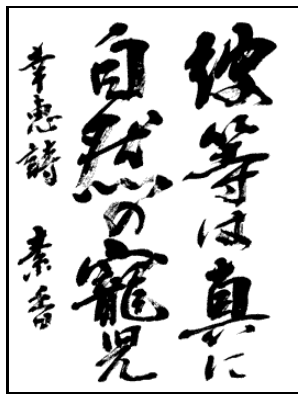 彼等は真に
自然の寵児
幸恵詩 素香